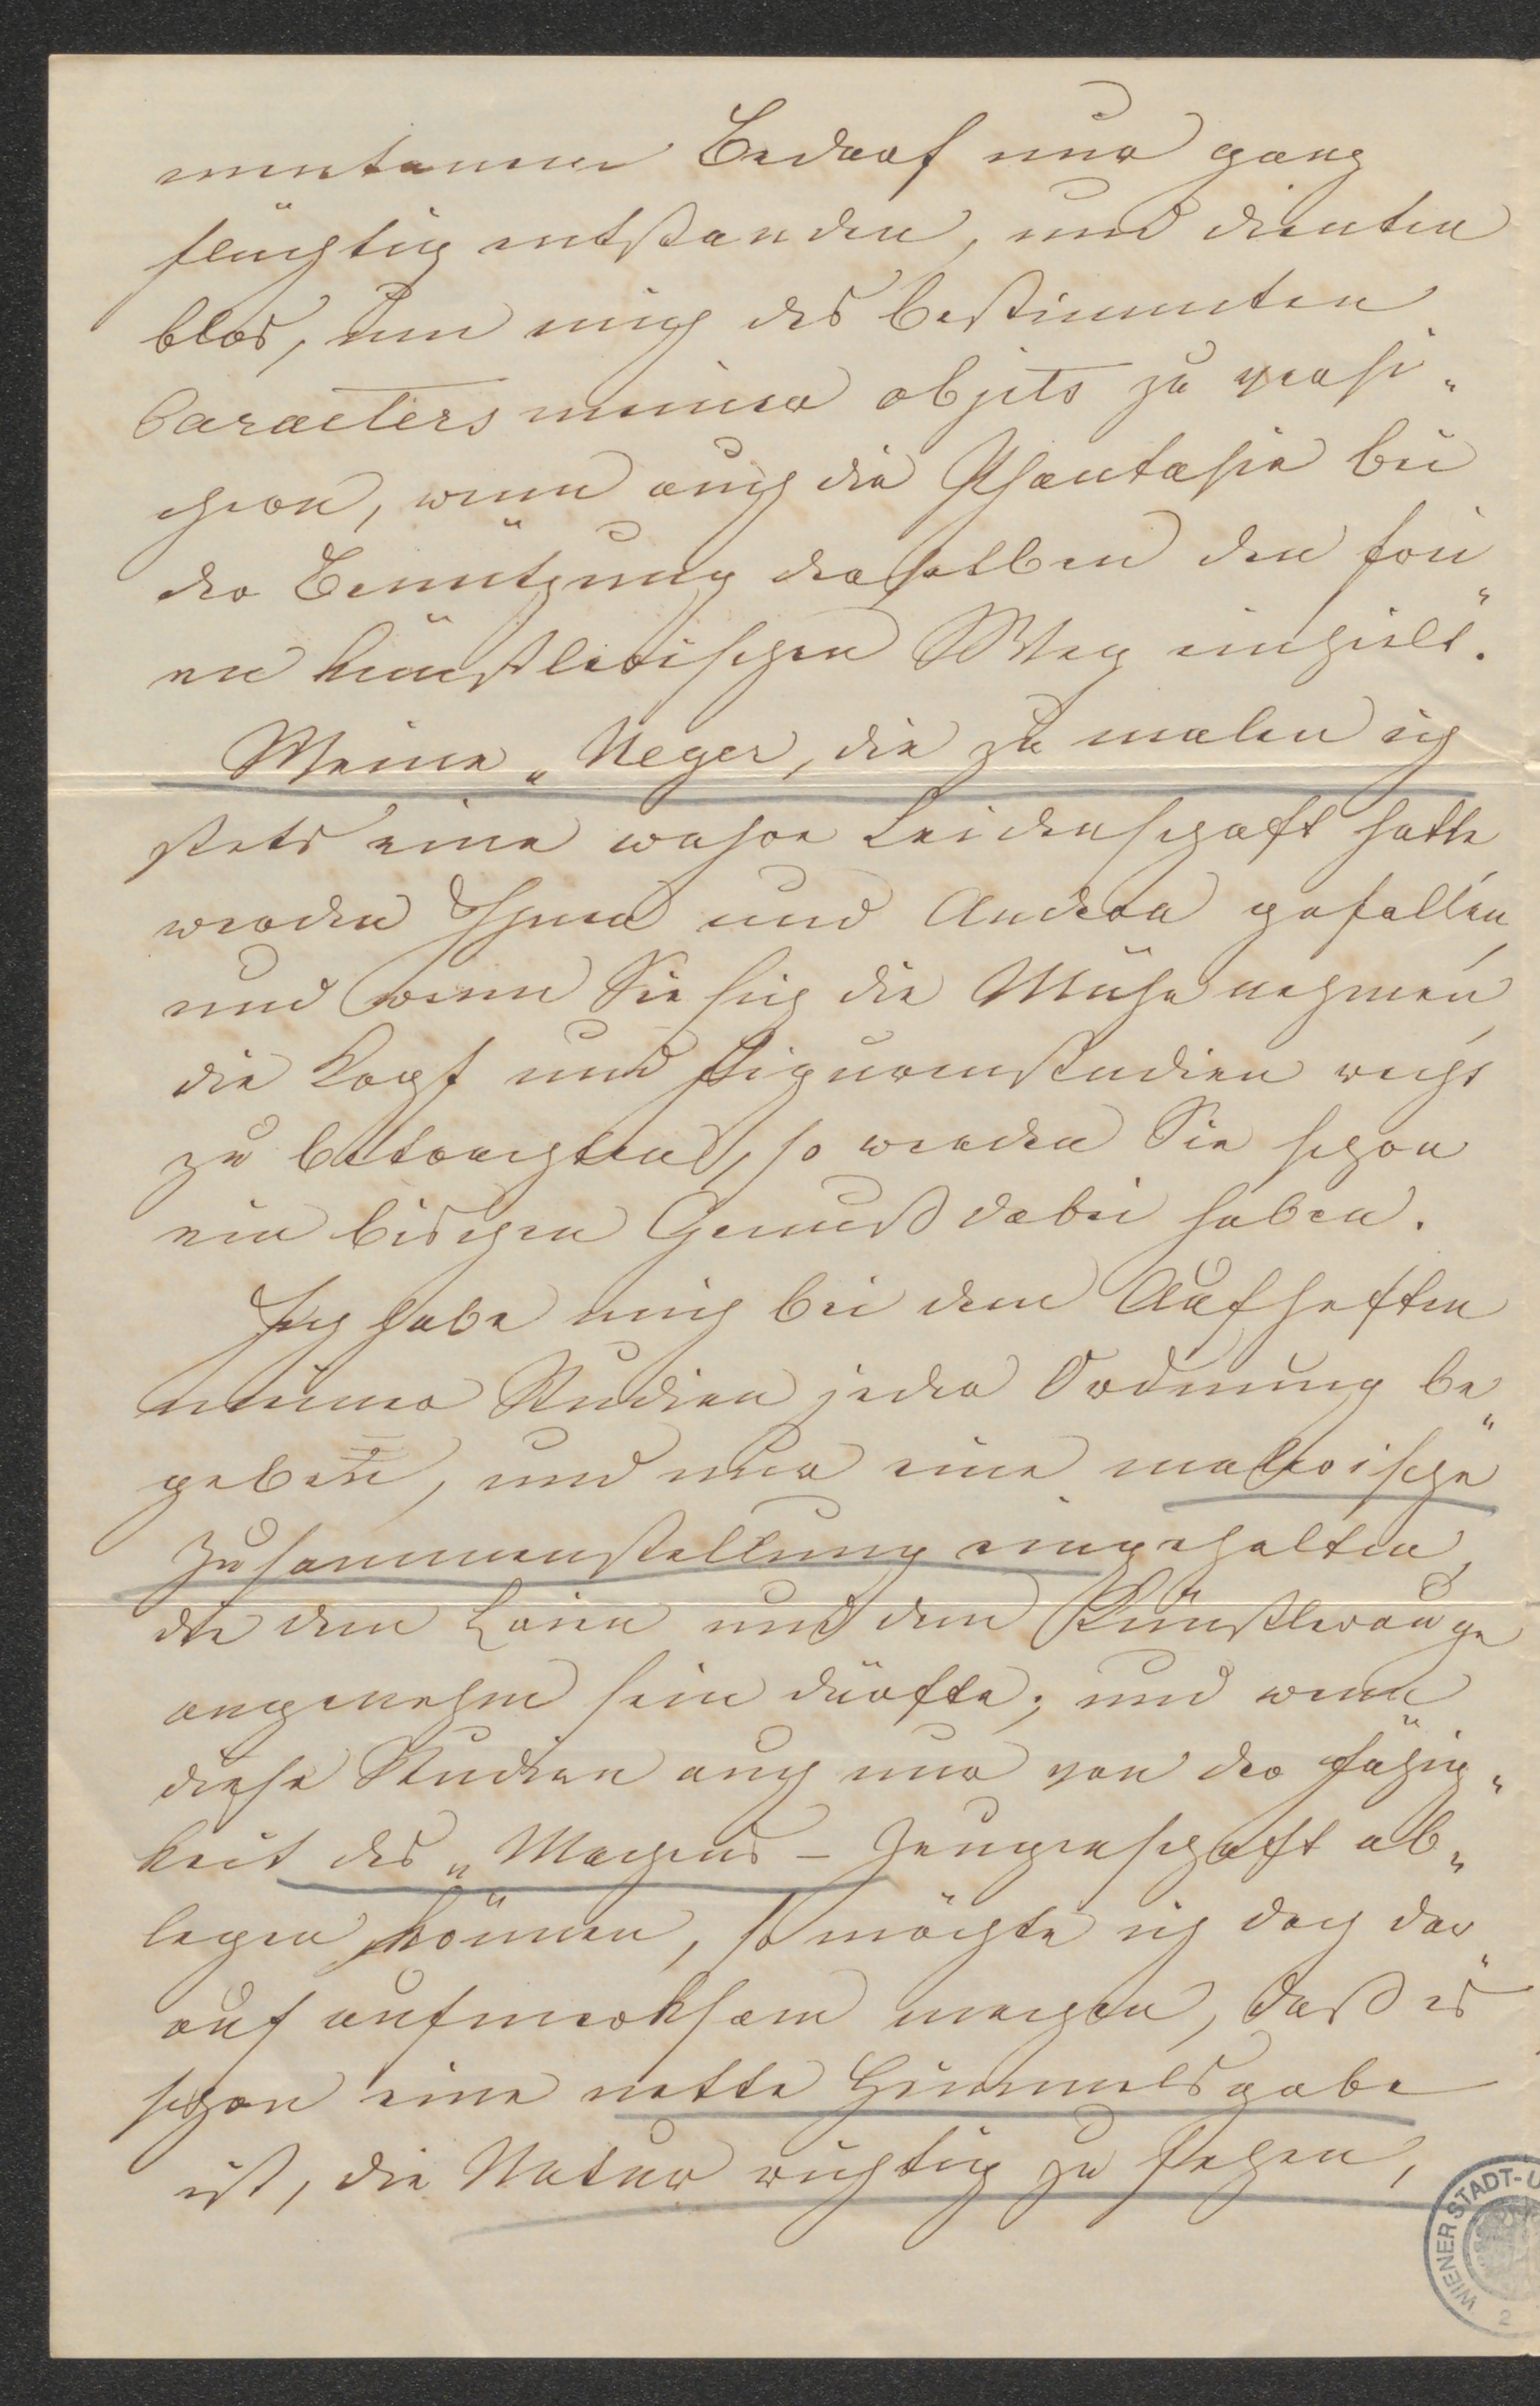 mentanen Bedarf nur ganz
flüchtig entstanden, und dienten
blos, um mich des bestimmten
Caracters meiner objets zu versi„
chern, wenn auch die Phantasie bei
der Benützung derselben den frei„
en künstlerischen Weg einhielt.
Meine „Neger, die zu malen ich
stets eine wahre Leidenschaft hatte,
werden Ihnen und Andern gefallen,
und wenn Sie sich die Mühe nehmen,
die Kopf und Figurenstudien recht
zu betrachten, so werden Sie schon
ein bischen Genuß dabei haben.
Ich habe mich bei dem Aufheften
meiner Studien jeder Ordnung be„
geben, und nur eine malerische
Zusammenstellung eingehalten,
die dem Laien und dem Künstlerauge
angenehm sein dürfte; und wenn
diese Studien auch nur von der Fähig„
keit des „Machens – Zeugenschaft ab„
legen können, so möchte ich doch dar„
auf aufmerksam machen, daß es
schon eine nette Himmelsgabe
ist, die Natur richtig zu sehen,
WIENER STADT-U
2